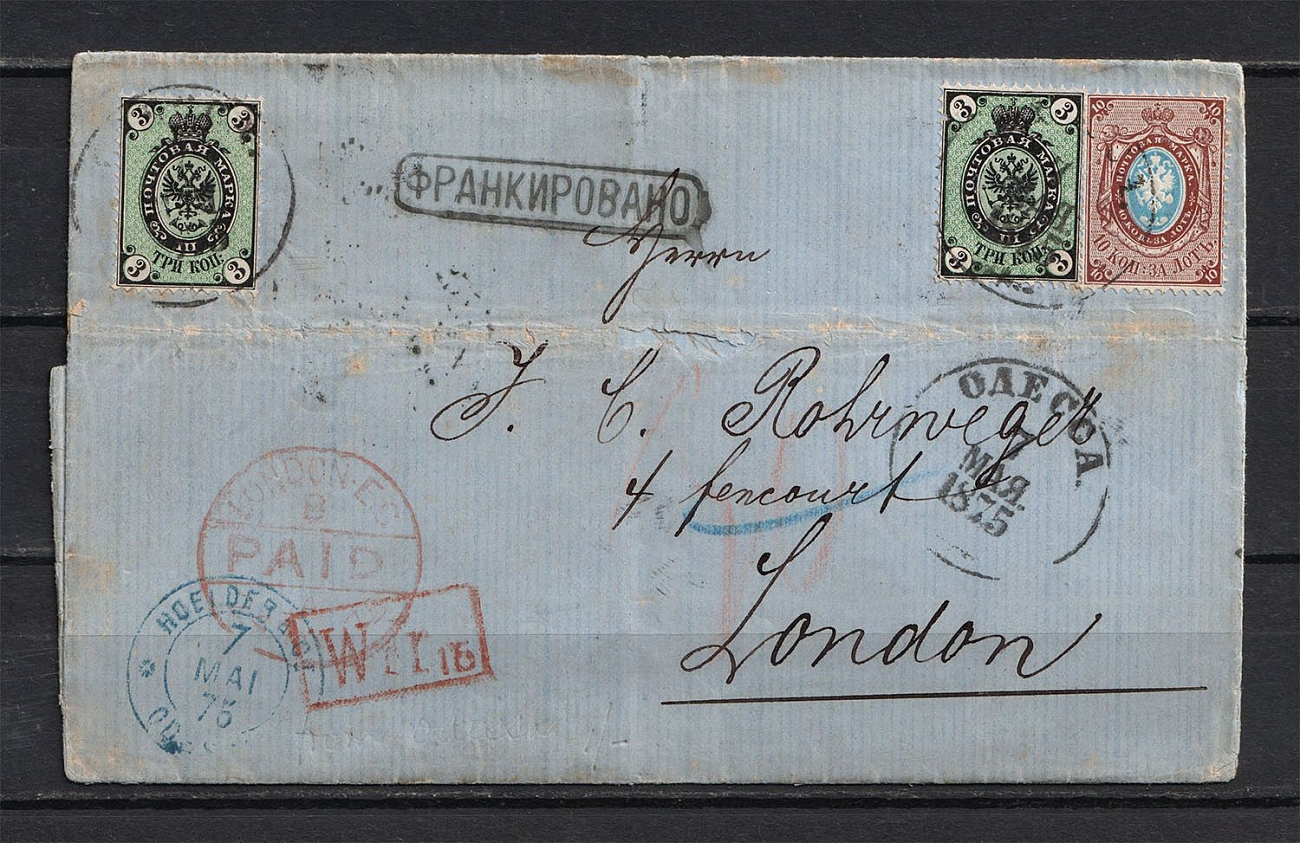 3 3
ПОЧТОВАЯ МАРКА
ТРИ КОП:
3 3
ФРАНКИРОВАНО
3 3
ПОЧТОВАЯ МАРКА
ТРИ КОП:
3 3
10 10
ПОЧТОВАЯ МАРКА
10 КОП: ЗА ЛОТЪ.
10 КОП: ЗА ЛОТЪ.
10 10
Herrn
J. C. Rohrweger
4 fencourt
London
ОДЕССА
7
МАЯ.
1875
LONDON-EC
PAID
7
MAI
75